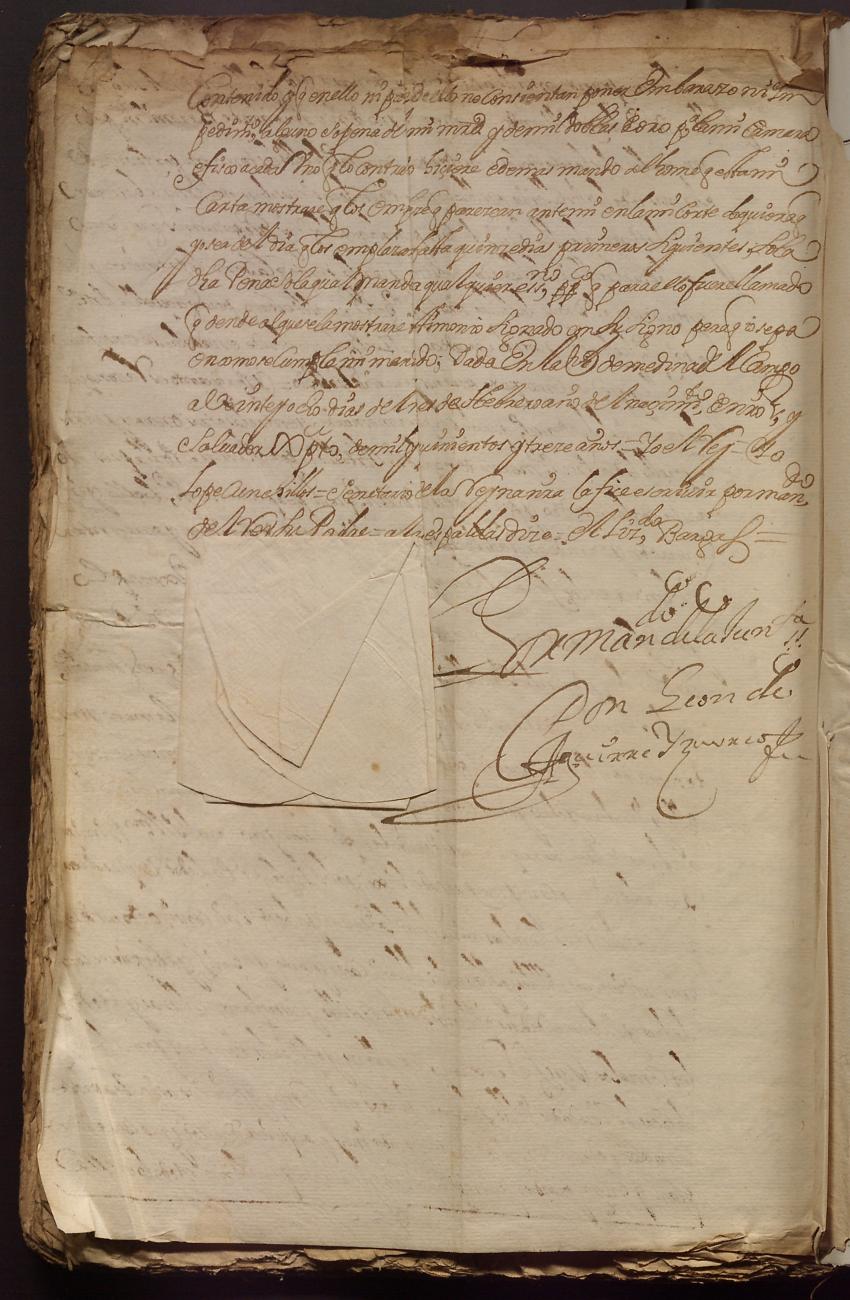 Contenido q̃ en ello ni p̃te de ello no consientan poner Embarazo ni im
pedimto alguno so pena de mi mrd y de mil doblas de oro pa la mi Camara
e fisco a cada Vno q̃ lo contrario hiciere e demas mando al home q̃ esta mi
Carta mostrare q̃ los emplaze q̃ parezcan ante mi en la mi Corte do quier q̃
yo sea del dia q̃ los emplazare hasta quinze dias primeros siguientes so la
dha Pena so la qual mando a qualquier essno puco q̃ para ello fuere llamado
q̃ dende al que se la mostrare testimonio signado con su signo para q̃ io sepa
en como se cumple la mi mandado; Dada En la Va de medina del Campo
a Veinte y ocho dias del mes de Hebrero año del naçimto de nro Sr y
Saluador JXpto, de mil y quinientos y treze años = Yo el Rey = Yo
Lope Cunchillos = Secretario de la Reynanra la fize escribir por mando
del Rey su Padre = a las espaldas dize = el Lizdo Bargas =
Don Leon de